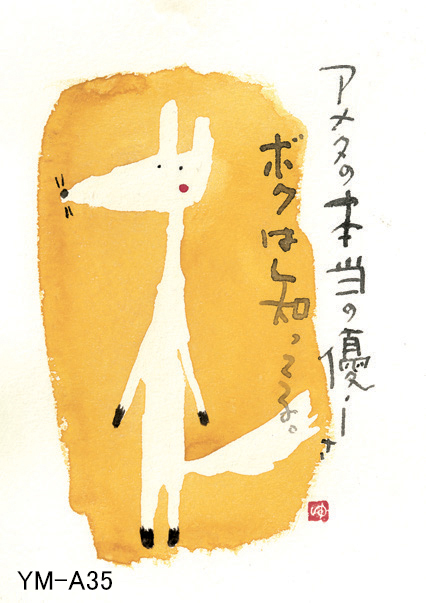 アメタの本当の優しさ
ボクは知ってる。
YM-A35